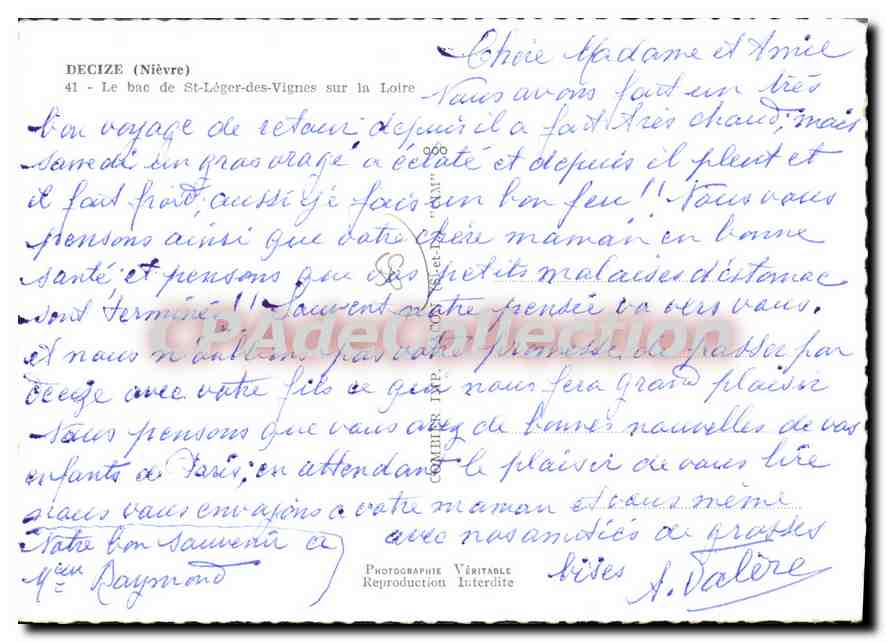 DECIZE (Nièvre)
41 - Le bac de St-Léger-des-Vignes sur la Loire
Chère Madame et Amie
Nous avons fait un très
bon voyage de retour, depuis il a fait très chaud; mais
samedi un gros orage a éclaté et depuis il pleut et
il fait froid; aussi je fais un bon feu!! Nous vous
pensons ainsi que votre chère maman en bonne
santé; et pensons que vos petits malaises d'estomac
sont terminés!! Souvent notre pensée va vers vous.
et nous n'oublions pas votre promesse de passer par
Decize avec votre fils ce qui nous fera grand plaisir
Nous pensons que vous avez de bonnes nouvelles de vos
enfants de Paris; en attendant le plaisir de vous lire
nous vous envoyons a votre maman et vous même
avec nos amitiés de grosses
bises
A. Valère
Notre bon souvenir a
Raymond
COMBIER IMP.
"CIM"
PHOTOGRAPHIE VÉRITABLE
Reproduction Interdite
CPAdeCollection